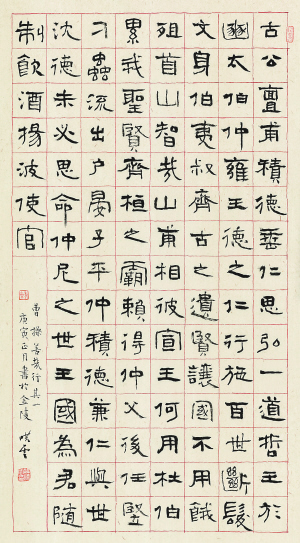 古公亶甫積德垂仁思弘一道哲王於
豳太伯仲雍王德之仁行施百世斷髮
文身伯夷叔齊古之遺賢讓國不用餓
殂首山智哉山甫相彼宣王何用杜伯
累我聖賢齊桓之霸賴得仲父後任竪
刁蟲流出户晏子平仲積德兼仁與世
沈德未必思命仲尼之世王國為君隨
制飲酒揚波使官
曹操善哉行其一
庚寅正月書於金陵